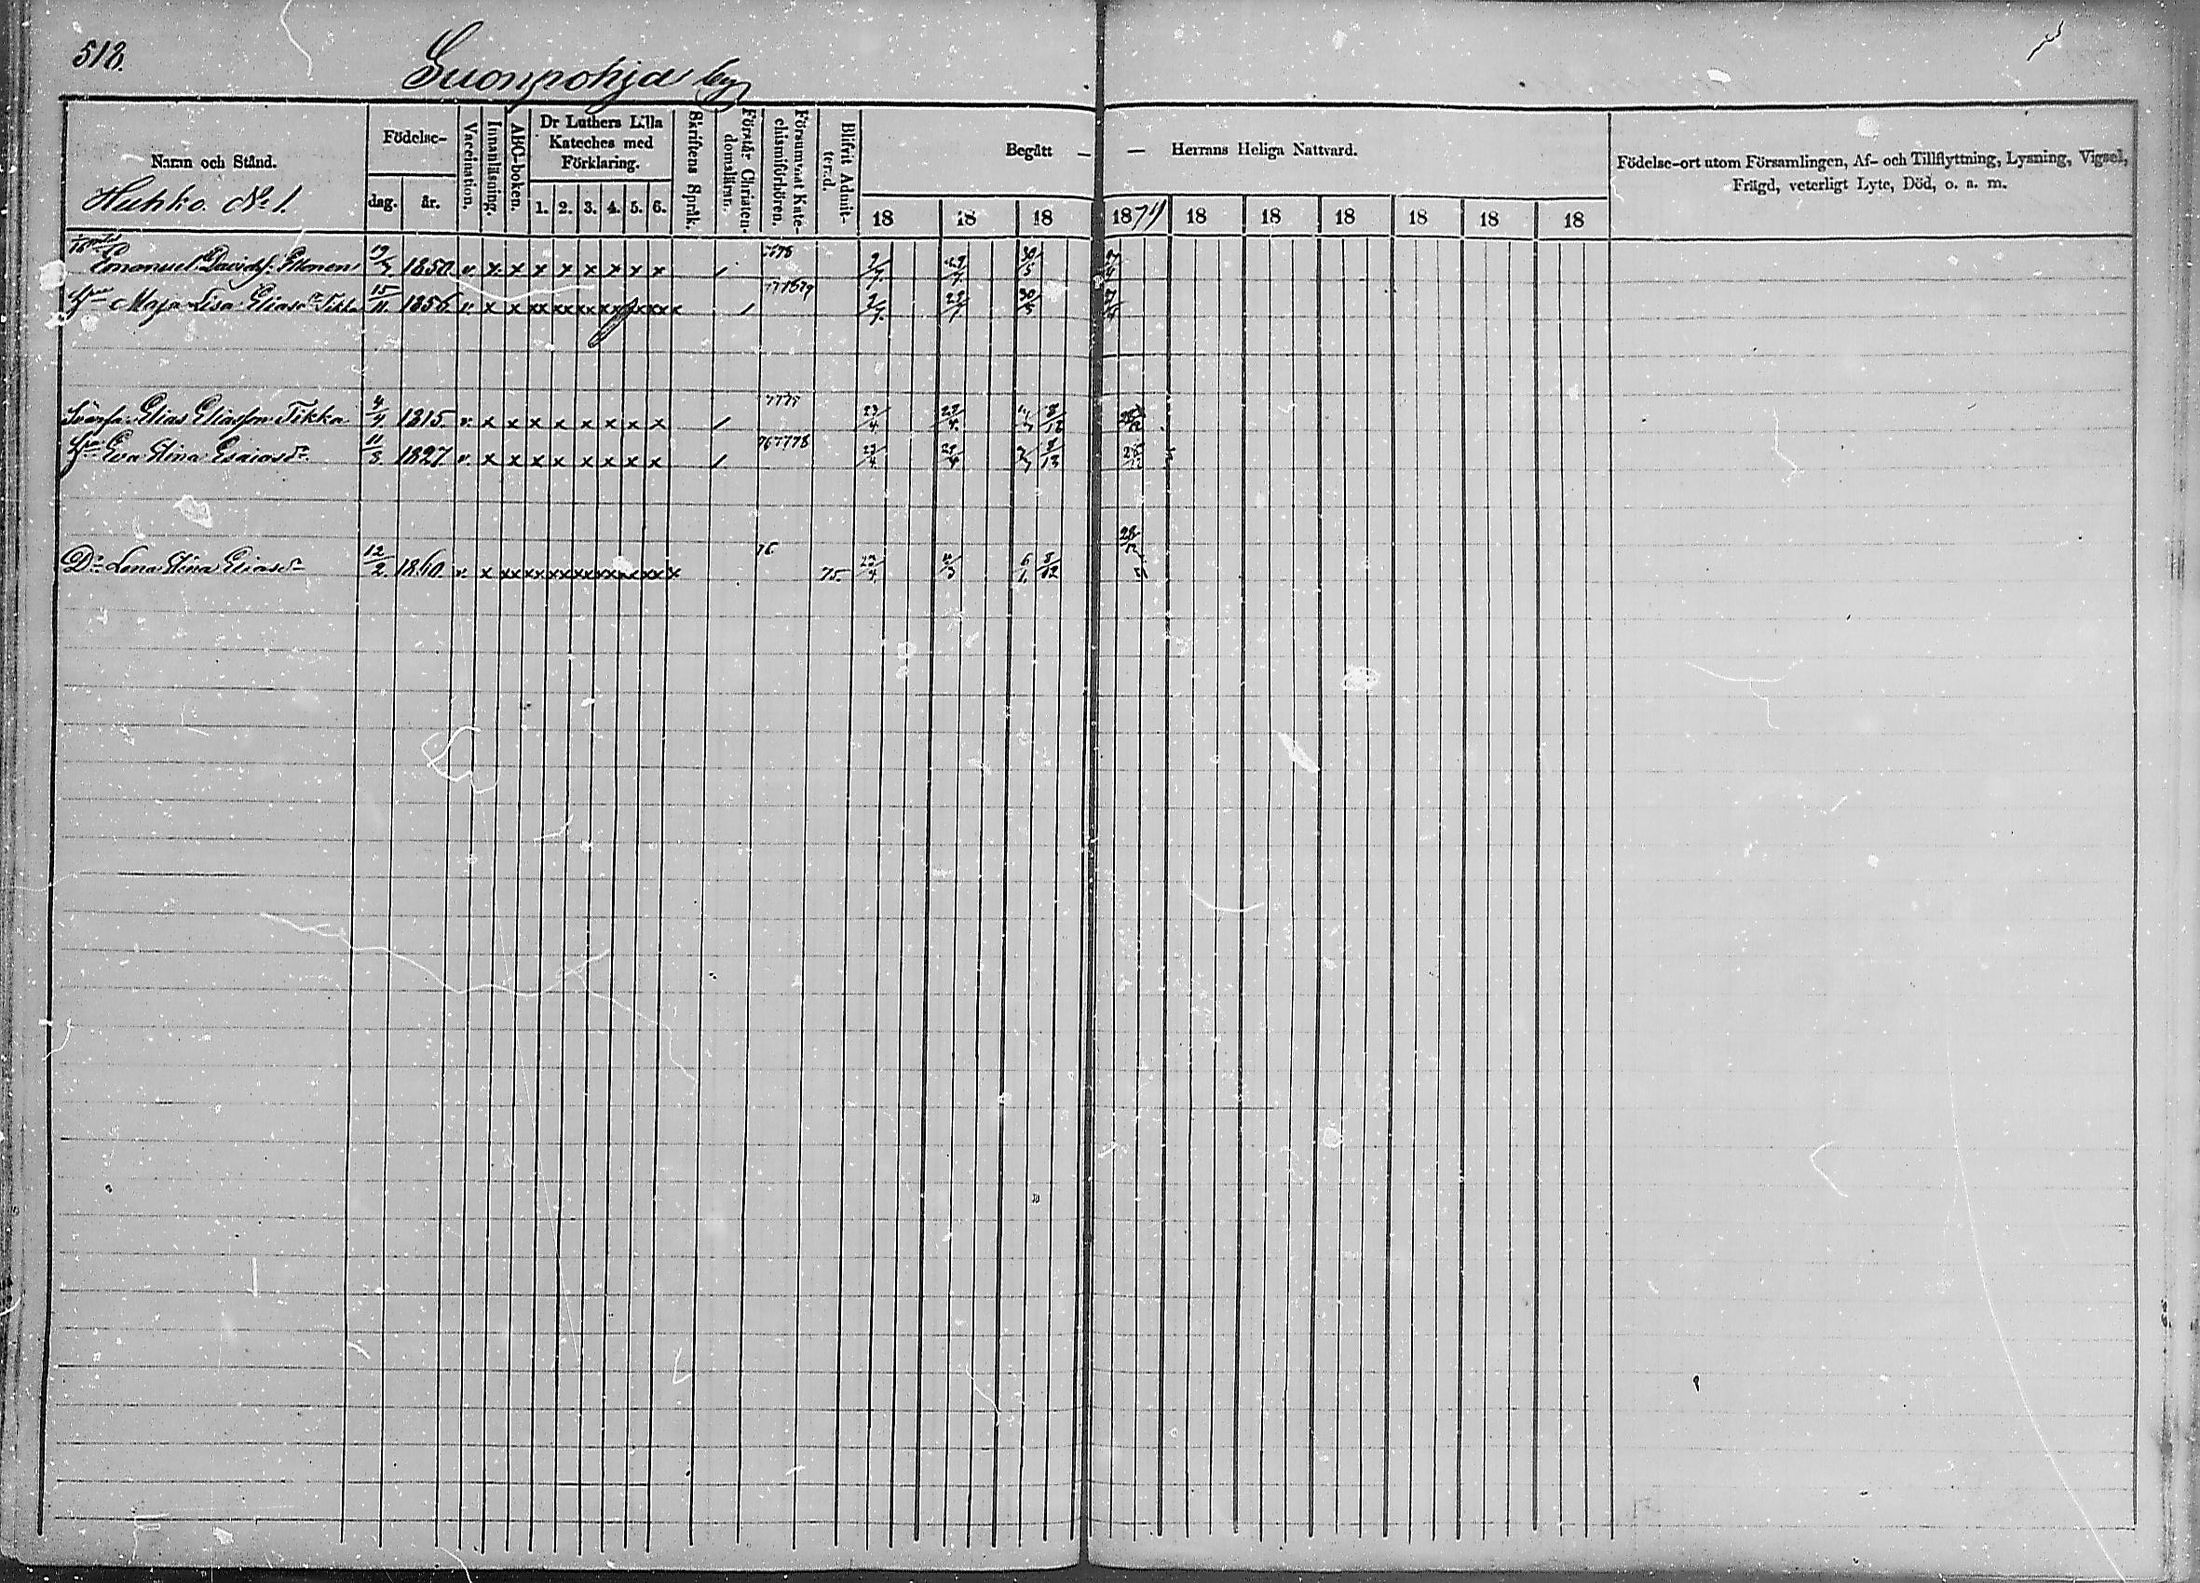 518.
Suonpohja by
Namn och Stånd.
Huhko No 1.
Födelse-
dag. år.
Vaccination.
Innanläsning.
ABC-boken.
Dr Luthers Lilla Kateches med Förklaring.
1. 2. 3. 4. 5. 6.
Skriftens Språk.
Förstår Christen-domslären.
Försummat Kate-chismiförhören.
Blifvit Admit-terad.
Begått — — Herrans Heliga Nattvard.
18 18 18 1879 18 18 18 18 18 18
Födelse-ort utom Församlingen, Af- och Tillflyttning, Lysning, Vigsel,
Frägd, veterligt Lyte, Död, o. a. m.
Emanuel Davidsf. 1850. v. x x x x x x x x 9/7. 30/5
Hu Maja Lisa Eliasdr Tikka 15/11. 1856. v. x x xx xx xx xx 2/7. 30/5
Svärfa. Elias Eliasson Tikka 4/4 1815. v. x x x x x x x x 23/4 8/12
Hu Eva Stina Esaiasdr 11/3. 1827. v. x x x x x x x x 767778 23/4 8/12
Dr Lena Stina Eliasdr 12/2. 1860. v. x xx xx xx xx 76 75. 6/1. 8/12 28/12